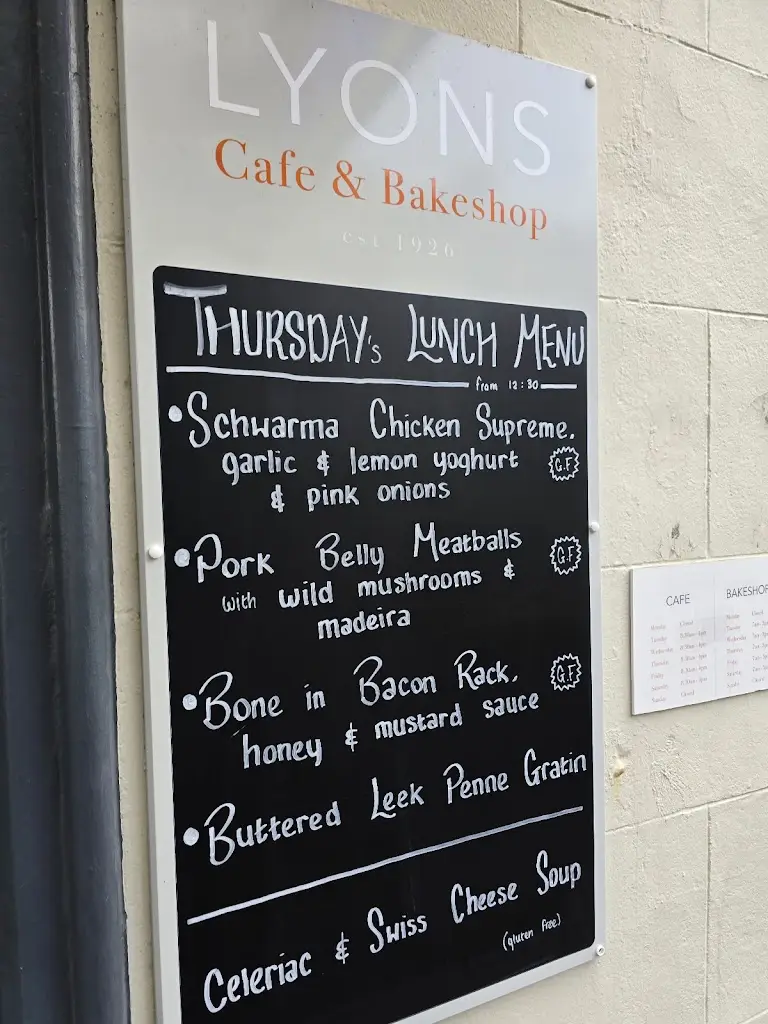 LYONS
Cafe & Bakeshop
est 1926
THURSDAY's LUNCH MENU
from 12:30
•Schwarma Chicken Supreme.
garlic & lemon yoghurt G.F
& pink onions
•Pork Belly Meatballs G.F
with wild mushrooms &
madeira
•Bone in Bacon Rack. G.F
honey & mustard sauce
•Buttered Leek Penne Gratin
Celeriac & Swiss Cheese Soup
(gluten free)
CAFE
BAKESHOP